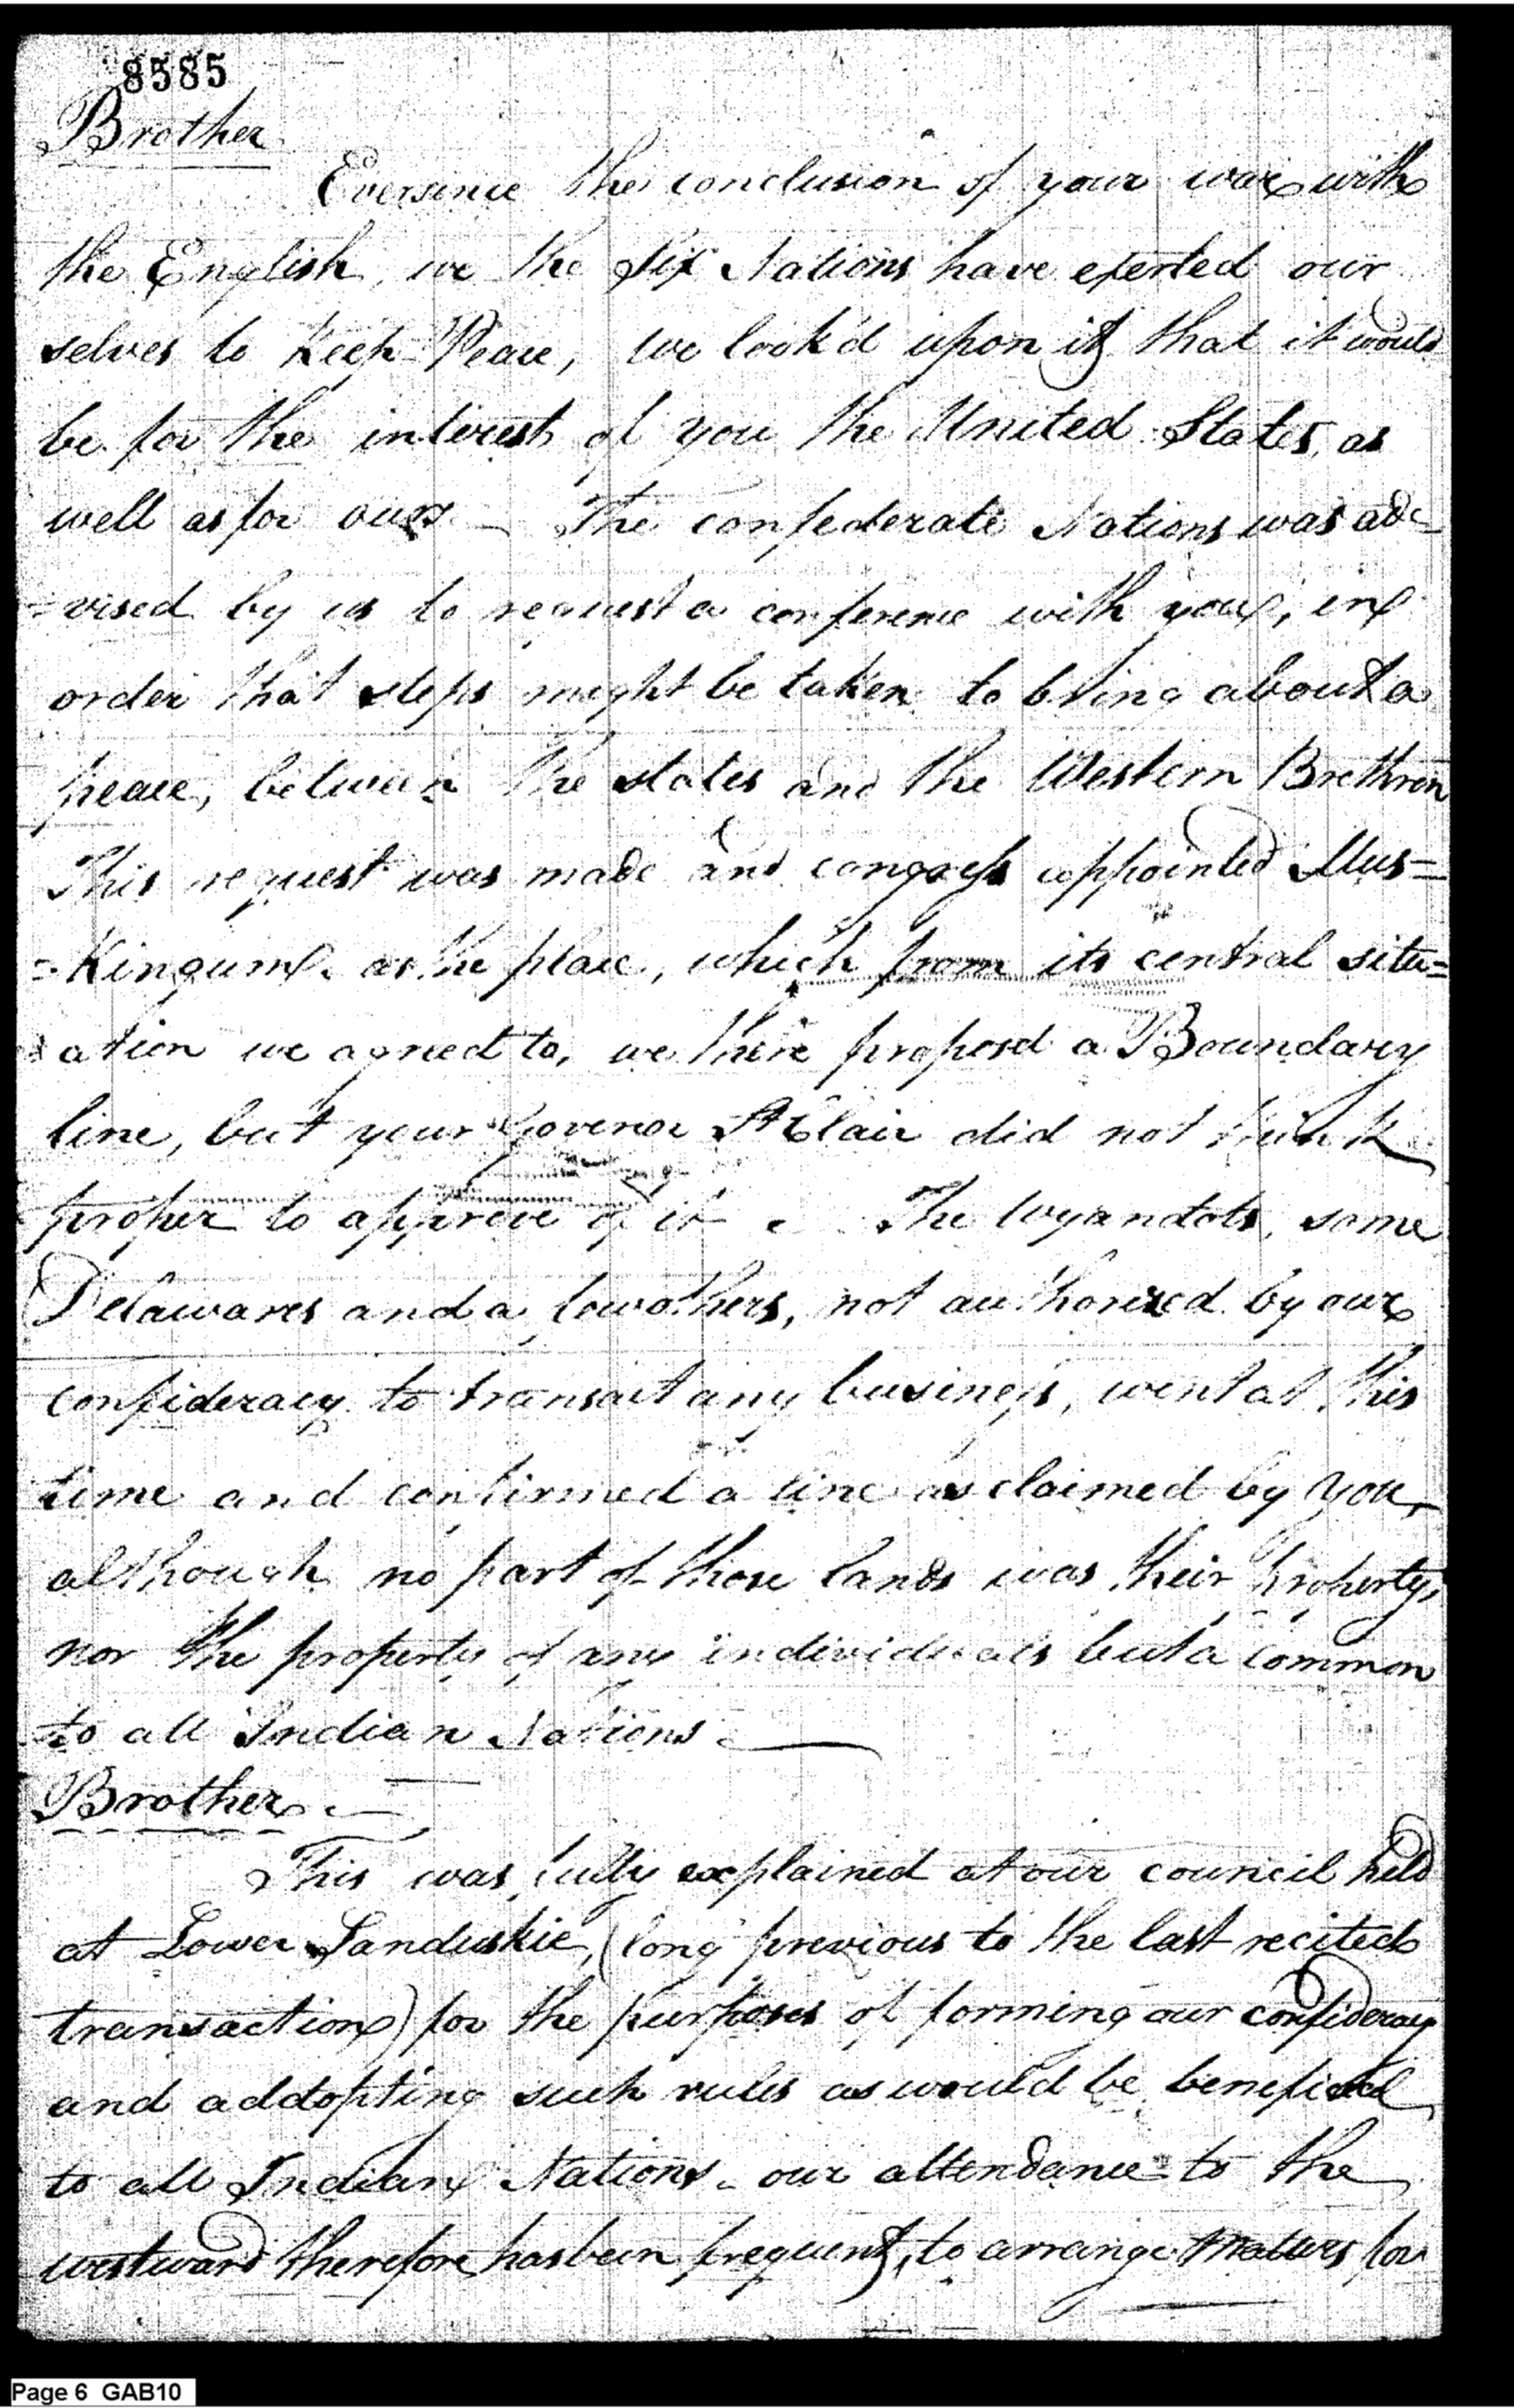 8585
Brother
Eversince the conclusion of your war with
the English, we the Six Nations have exerted our
selves to keep Peace, we look'd upon it, that it would
be for the interest of you the United States, as
well as for ours - The confederate Nations was ad=
=vised by us to request a conference with you, in
order that steps might be taken to bring about a
peace, between the states and the Western Brethren
This request was made and congress appointed Mus=
=Kingum. as the place, which from its central situ=
=ation we agreed to, we there proposd a Boundary
line, but your Govenor St Clair did not think
proper to approve of it. The Wyandots, some
Delawares and a few others, not authorized by our
confideracy to transact any business, went at this
time and confirmed a line as claimed by you,
although no part of those lands was their Property,
nor the property of any individuals but a common
to all Indian Nations. —
Brother. —
This was fully explained at our council held
at Lower Sanduskie, (long previous to the last recited
transaction) for the purposes of forming our confideracy
and addopting such rules as would be beneficial
to all Indian Nations - our attendance to the
westward therefore has been frequent, to arrange matters for
Page 6 GAB10